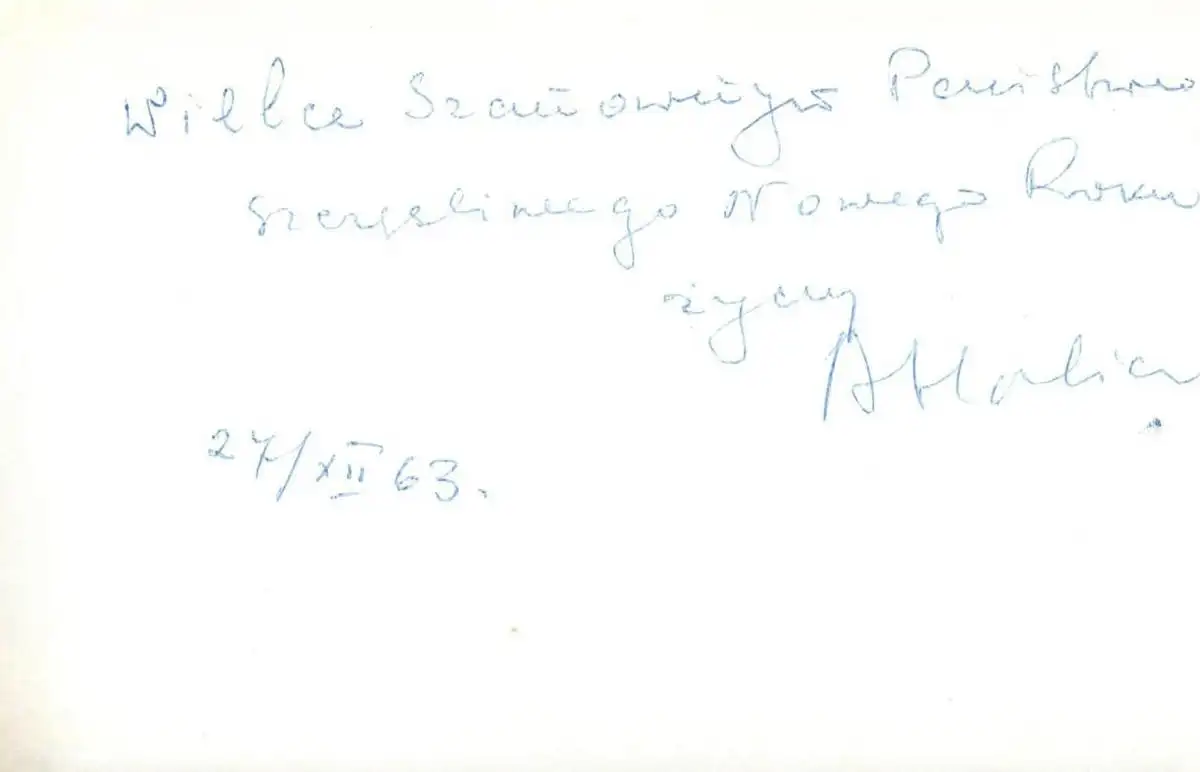 Wielce Szanownym Państwu
szczęśliwego Nowego Roku
życzy
27/XII 63.